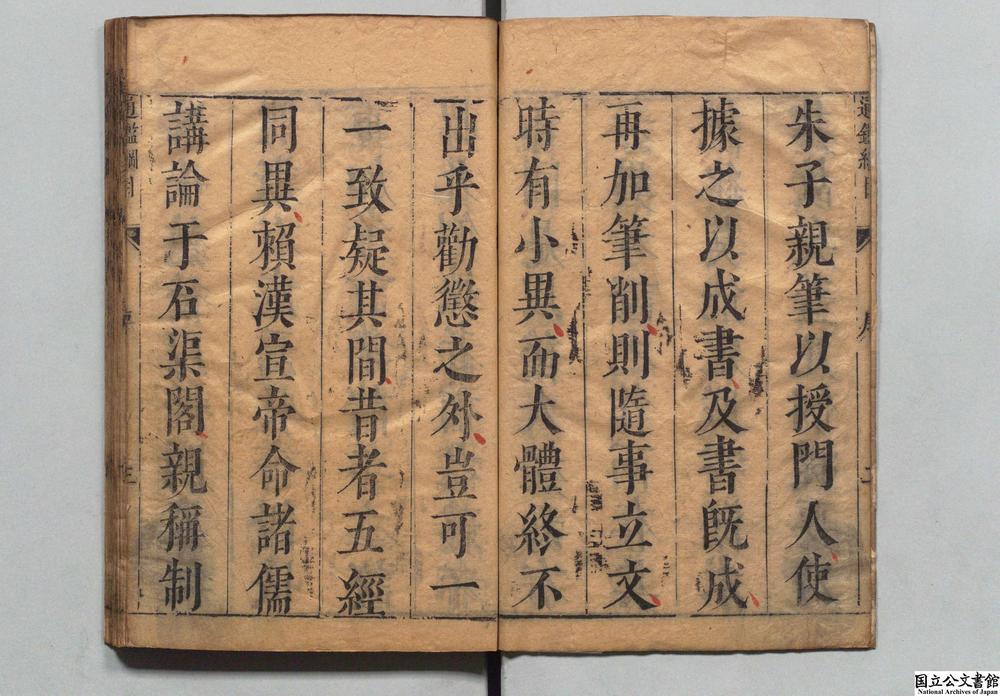 朱子親筆以授門人使
據之以成書及書既成
再加筆削則隨事立文
時有小異而大體終不
出乎勸懲之外豈可一
一致疑其間昔者五經
同異賴漢宣帝命諸儒
講論于石渠閣親稱制
通鑑綱目
国立公文書館
National Archives of Japan